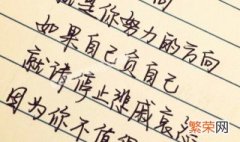 就是你努力的方向
如果自己负自己
就请停止悲戚哀
因为你不值得
繁荣网